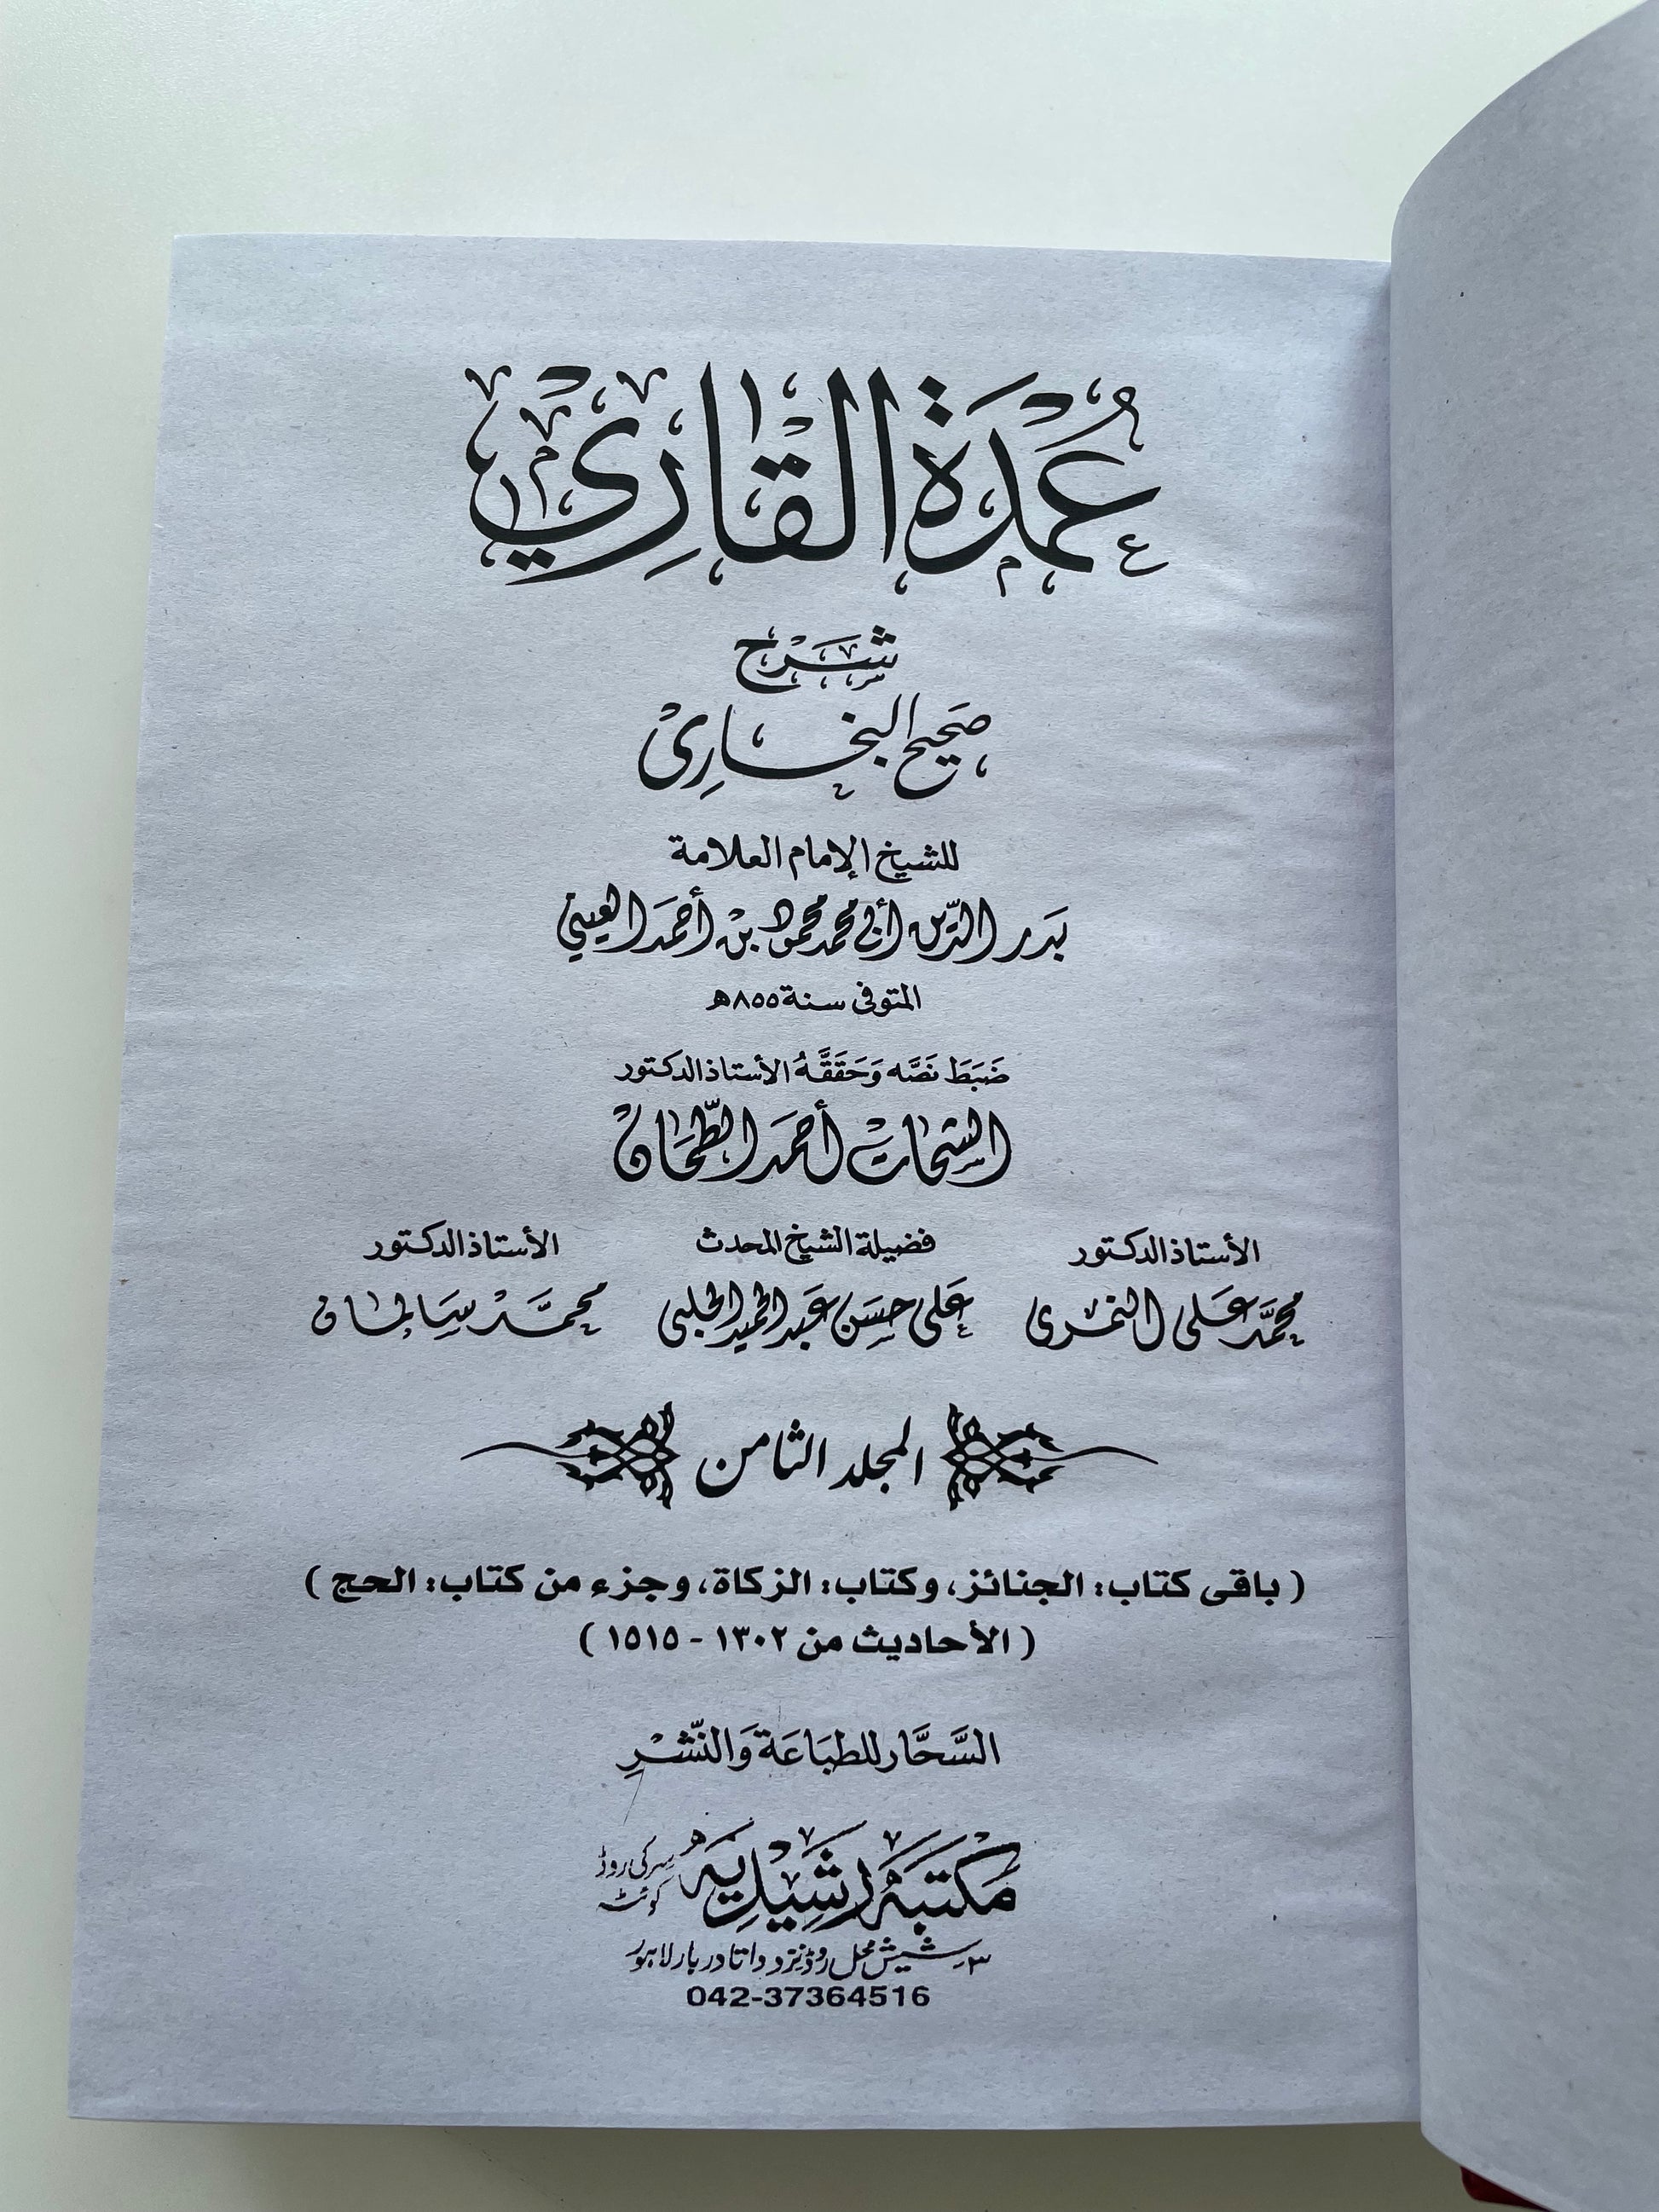 عُمْدَةُ القَارِي
شَرْح
صَحِيحِ البُخَارِيْ
للشيخ الإمام العلامة
بَدر الدِّين أبي محمد محمود بن أحمَد العيني
المتوفى سنة ٨٥٥هـ
ضَبَطَ نَصَّه وَحَقَّقَهُ الأستاذ الدكتور
الشحات أحمَد الطّحان
الأستاذ الدكتور
فضيلة الشيخ المحدث
الأستاذ الدكتور
محمَّد عَلى النمرى
عَلى حسَن عَبد الحميد الحلبى
محمَّد سَالمان
المجلد الثامن
( باقى كتاب: الجنائز، وكتاب: الزكاة، وجزء من كتاب: الحج )
( الأحاديث من ١٣٠٢ - ١٥١٥ )
السَّحَّار للطبَاعَة وَالنّشْرِ
مَكتَبَہ رَشِيْدِيَہ
سرکی روڈ
کوئٹہ
٣ شیش محل روڈ نزد داتا دربار لاہور
042-37364516